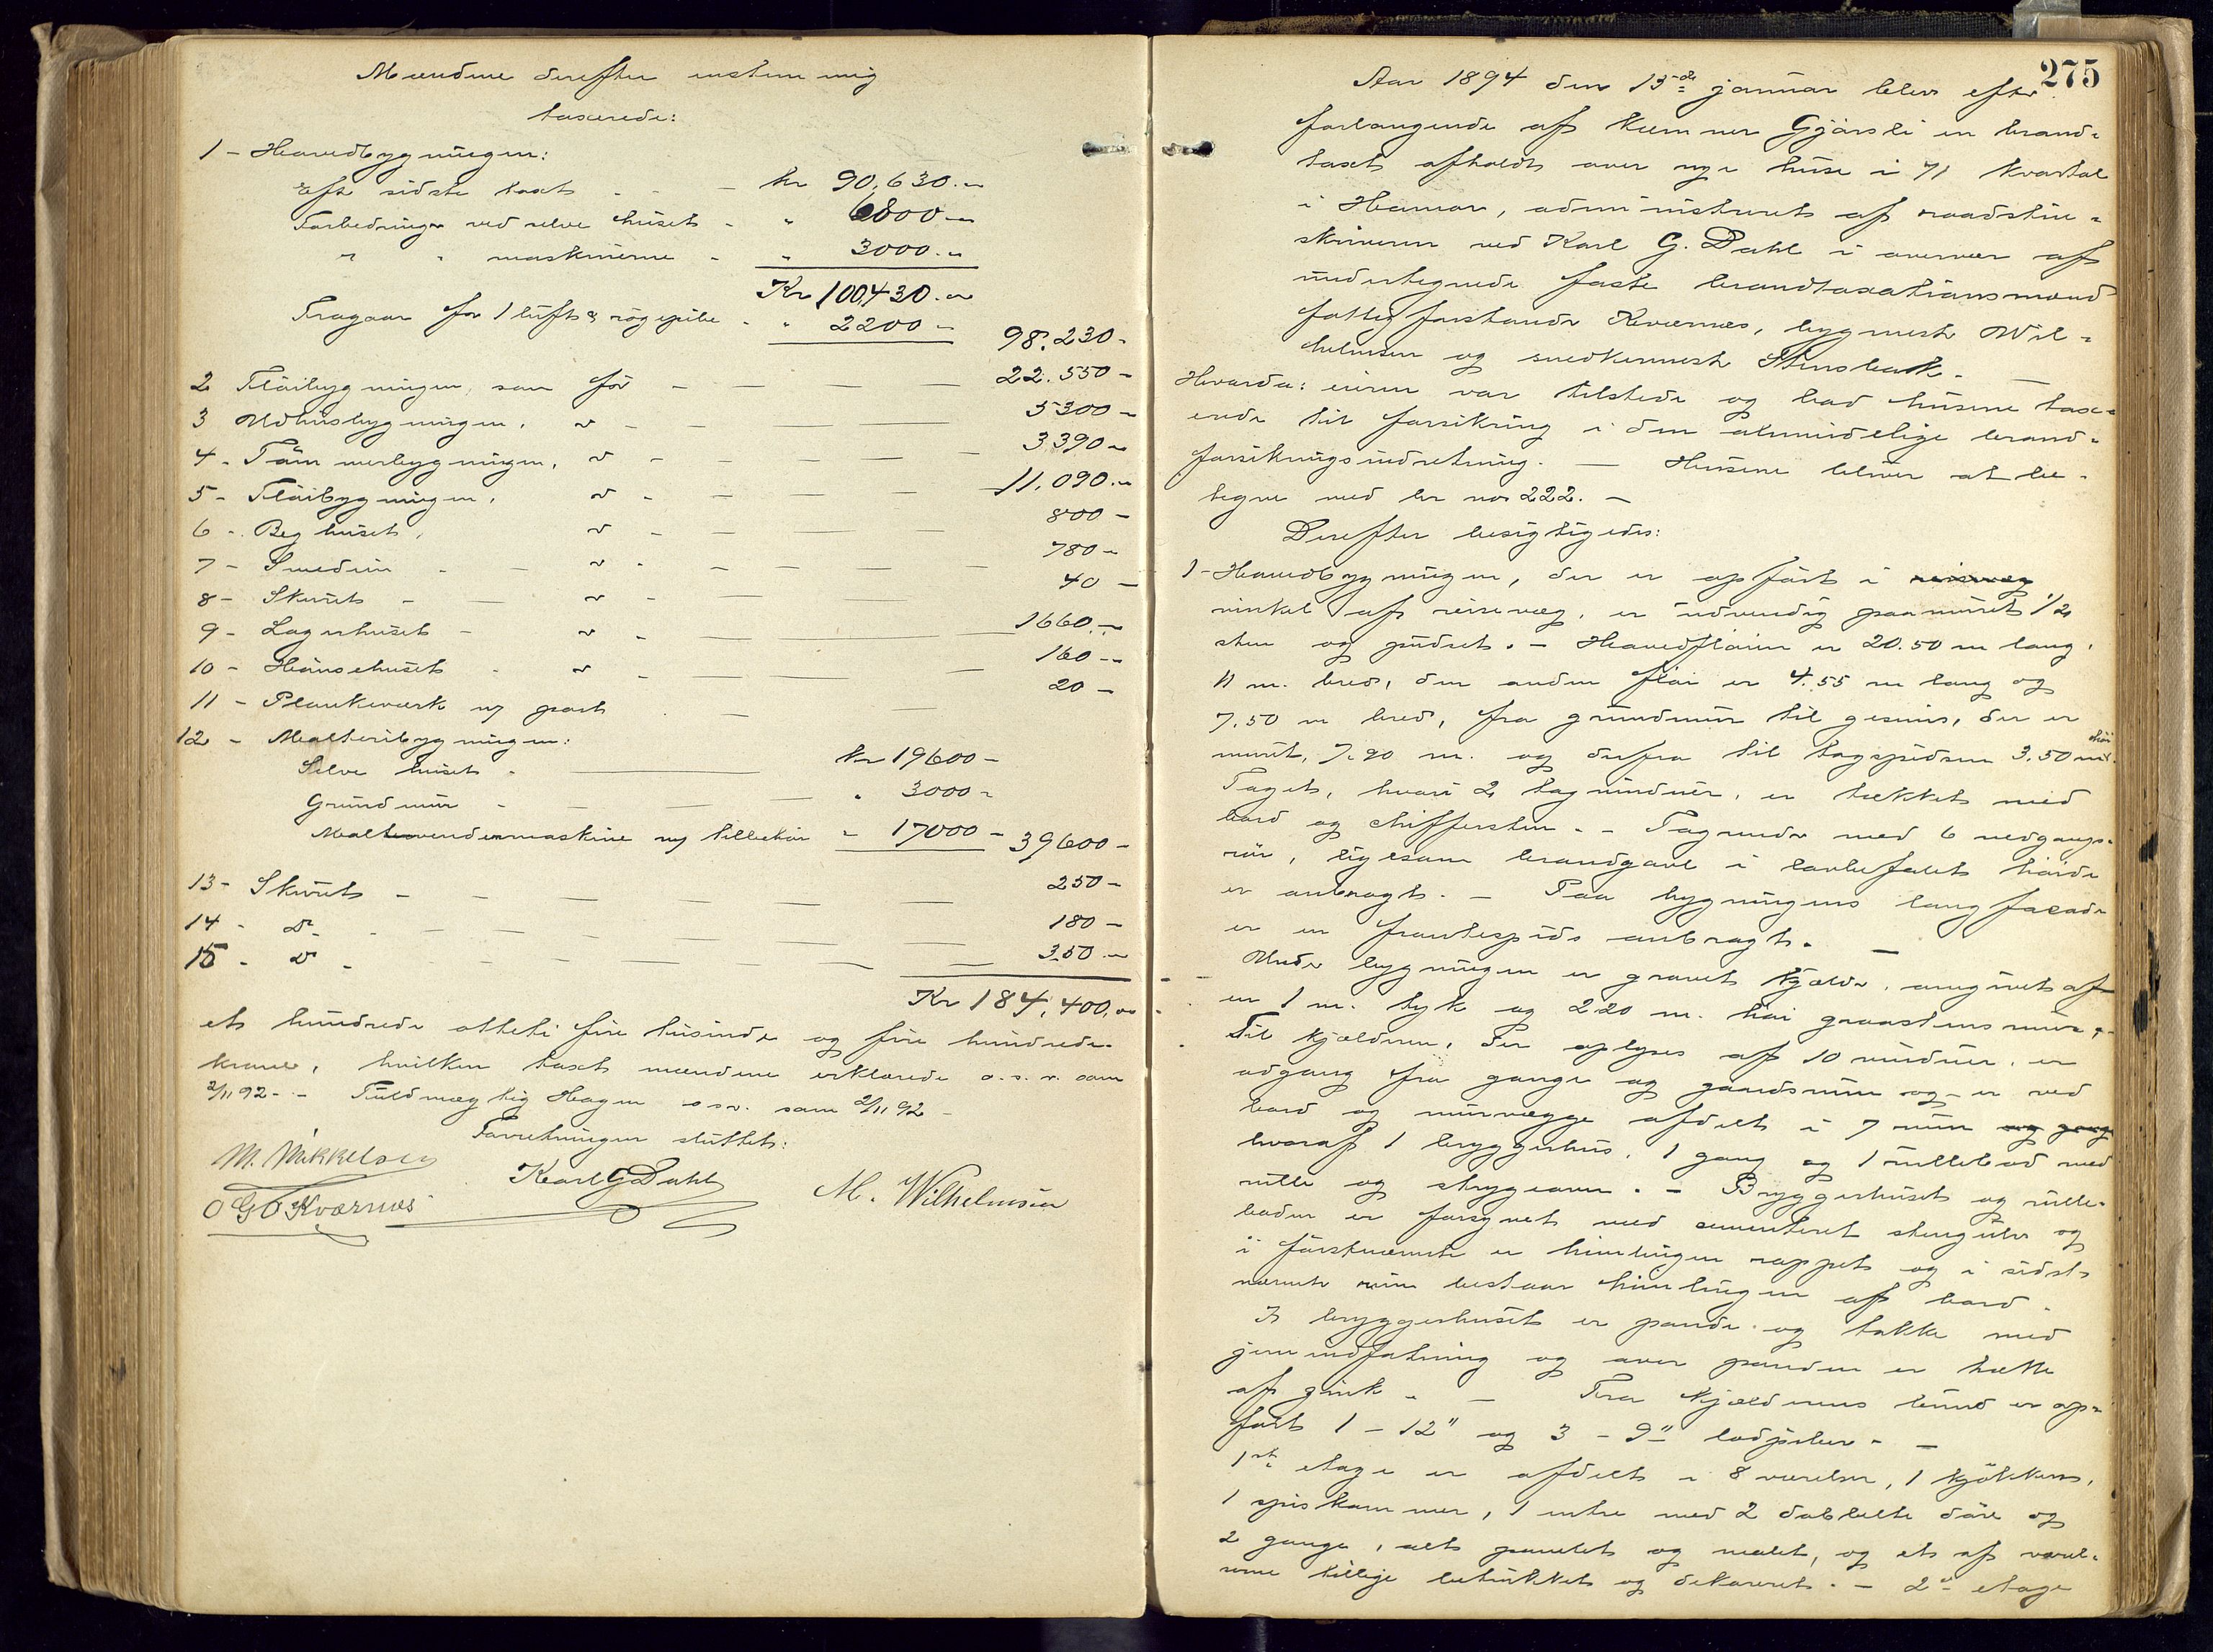 Mændene derefter enstemmig
taxerede:
1 - Hovedbygningen:
Eft sidste taxt - - - kr 90,630.-
Forbedringer ved selve huset - " 6800.-
" " maskinerne - " 3000.-
Kr 100430.-
Fragaar for 1 luft & røgpibe - " 2200 - 98.230-
2 Fløibygningen, som før - - - - 22.550-
3 Udhusbygningen, do - - - - 5300-
4 - Tømmerbygningen, do - - - - 3390-
5 - Fløibygningen, do - - - - 11.090.-
6 - Beghuset, do - - - - 800-
7 - Smedien - - do - - - - 780-
8 - Skuret - - do - - - - 40-
9 - Lagerhuset - do - - - - 1660.-
10 - Hønsehuset - do - - - - 160-
11 - Plankeværk og port - - - 20-
12 - Malteribygningen:
Selve huset - kr 19600-
Grundmur - - - - " 3000-
Maltvendermaskine og tilbehør " 17000 - 39600-
13 - Skuret - - - - - - 250-
14 - do - - - - - - 180-
15 - do - - - - - - 350.-
Kr 184,400.00
et hundrede otteti fire tusinde og fire hundrede
kroner, hvilken taxt mændene erklærede o.s.v. som
2/11 92 - - Fuldmægtig Hagen osv. som 2/11 92 -
Forretningen sluttet:
M. Mikkelsen
Karl G Dahl M. Wilhelmsen
O G O Kværnes
275
Aar 1894 den 15de januar blev efter
forlangende af kemner Gjørsli en brand-
taxt afholdt over nye huse i 71 kvartal
i Hamar, administreret af raadstue-
skriveren ved Karl G. Dahl i overvær af
undertegnede faste brandtaxationsmænd
fattigforstander Kværnes, bygmester Wil-
helmsen og snedkermester Stensbak. -
Hvorda: eieren var tilstede og bad husene taxe-
rende til forsikring i den almindelige brand-
forsikringsindretning. - Husene bliver at be-
tegne med br no 222. -
Derefter besigtigedes:
1 - Hovedbygningen, der er opført i reisværg
vinkel af reisevæg, er udvendig paamuret 1/2
sten og pudset. - Hovedfløien er 20.50 m lang,
11 m. bred, den anden fløi er 4.55 m lang og
7.50 m bred, fra grundmur til gesims, der er
muret, 7.20 m. og derfra til tagspidsen 3.50 m høi.
Taget, hvori 2 tagvinduer, er tækket med
bord og skiffersten. - Tagrender med 6 nedgangs-
rør, ligesom brandgavl i lovbefalet høide
er anbragt. - Paa bygningens lang facade
er en frontespids anbragt. -
Under bygningen er gravet kjelder, omgivet af
en 1 m. tyk og 2.20 m. høi graastensmur. -
Til kjelderen, der oplyses af 10 vinduer, er
adgang fra gange og gaardsrum og er ved
bord og murvægge afdelt i 7 rum og gang
hvoraf 1 bryggerhus, 1 gang og 1 rullebod med
rulle og strygeovn. - Bryggerhuset og rulle-
boden er forsynet med cementeret stengulv og
i førstnævnte er himlingen rappet og i sidst-
nævnte rum bestaar himlingen af bord.
I bryggerhuset er pande og takke med
jernindfatning og over panden er hætte
af zink. - Fra kjelderens bund er op-
ført 1 - 12" og 3 - 9" lodpiber. -
1ste etage er afdelt i 8 værelser, 1 kjøkken,
1 spiskammer, 1 entre med 2 dobbelte døre og
2 gange, alt panelet og malet, og et af værel-
serne tillige betrukket og dekoreret. - 2den etage